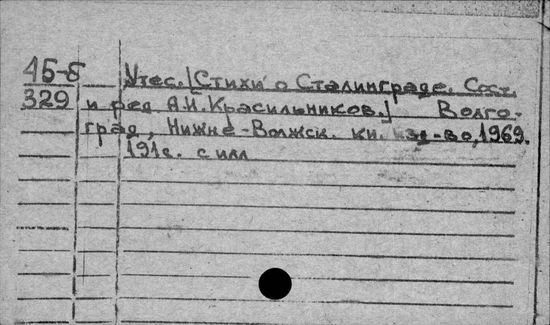 45-5 Утес. [Стихи о Сталинграде. Сост.
329 и ред. А.И. Красильников.] Волго-
град, Нижне-Волжск. кн. изд-во, 1969.
191с. с илл